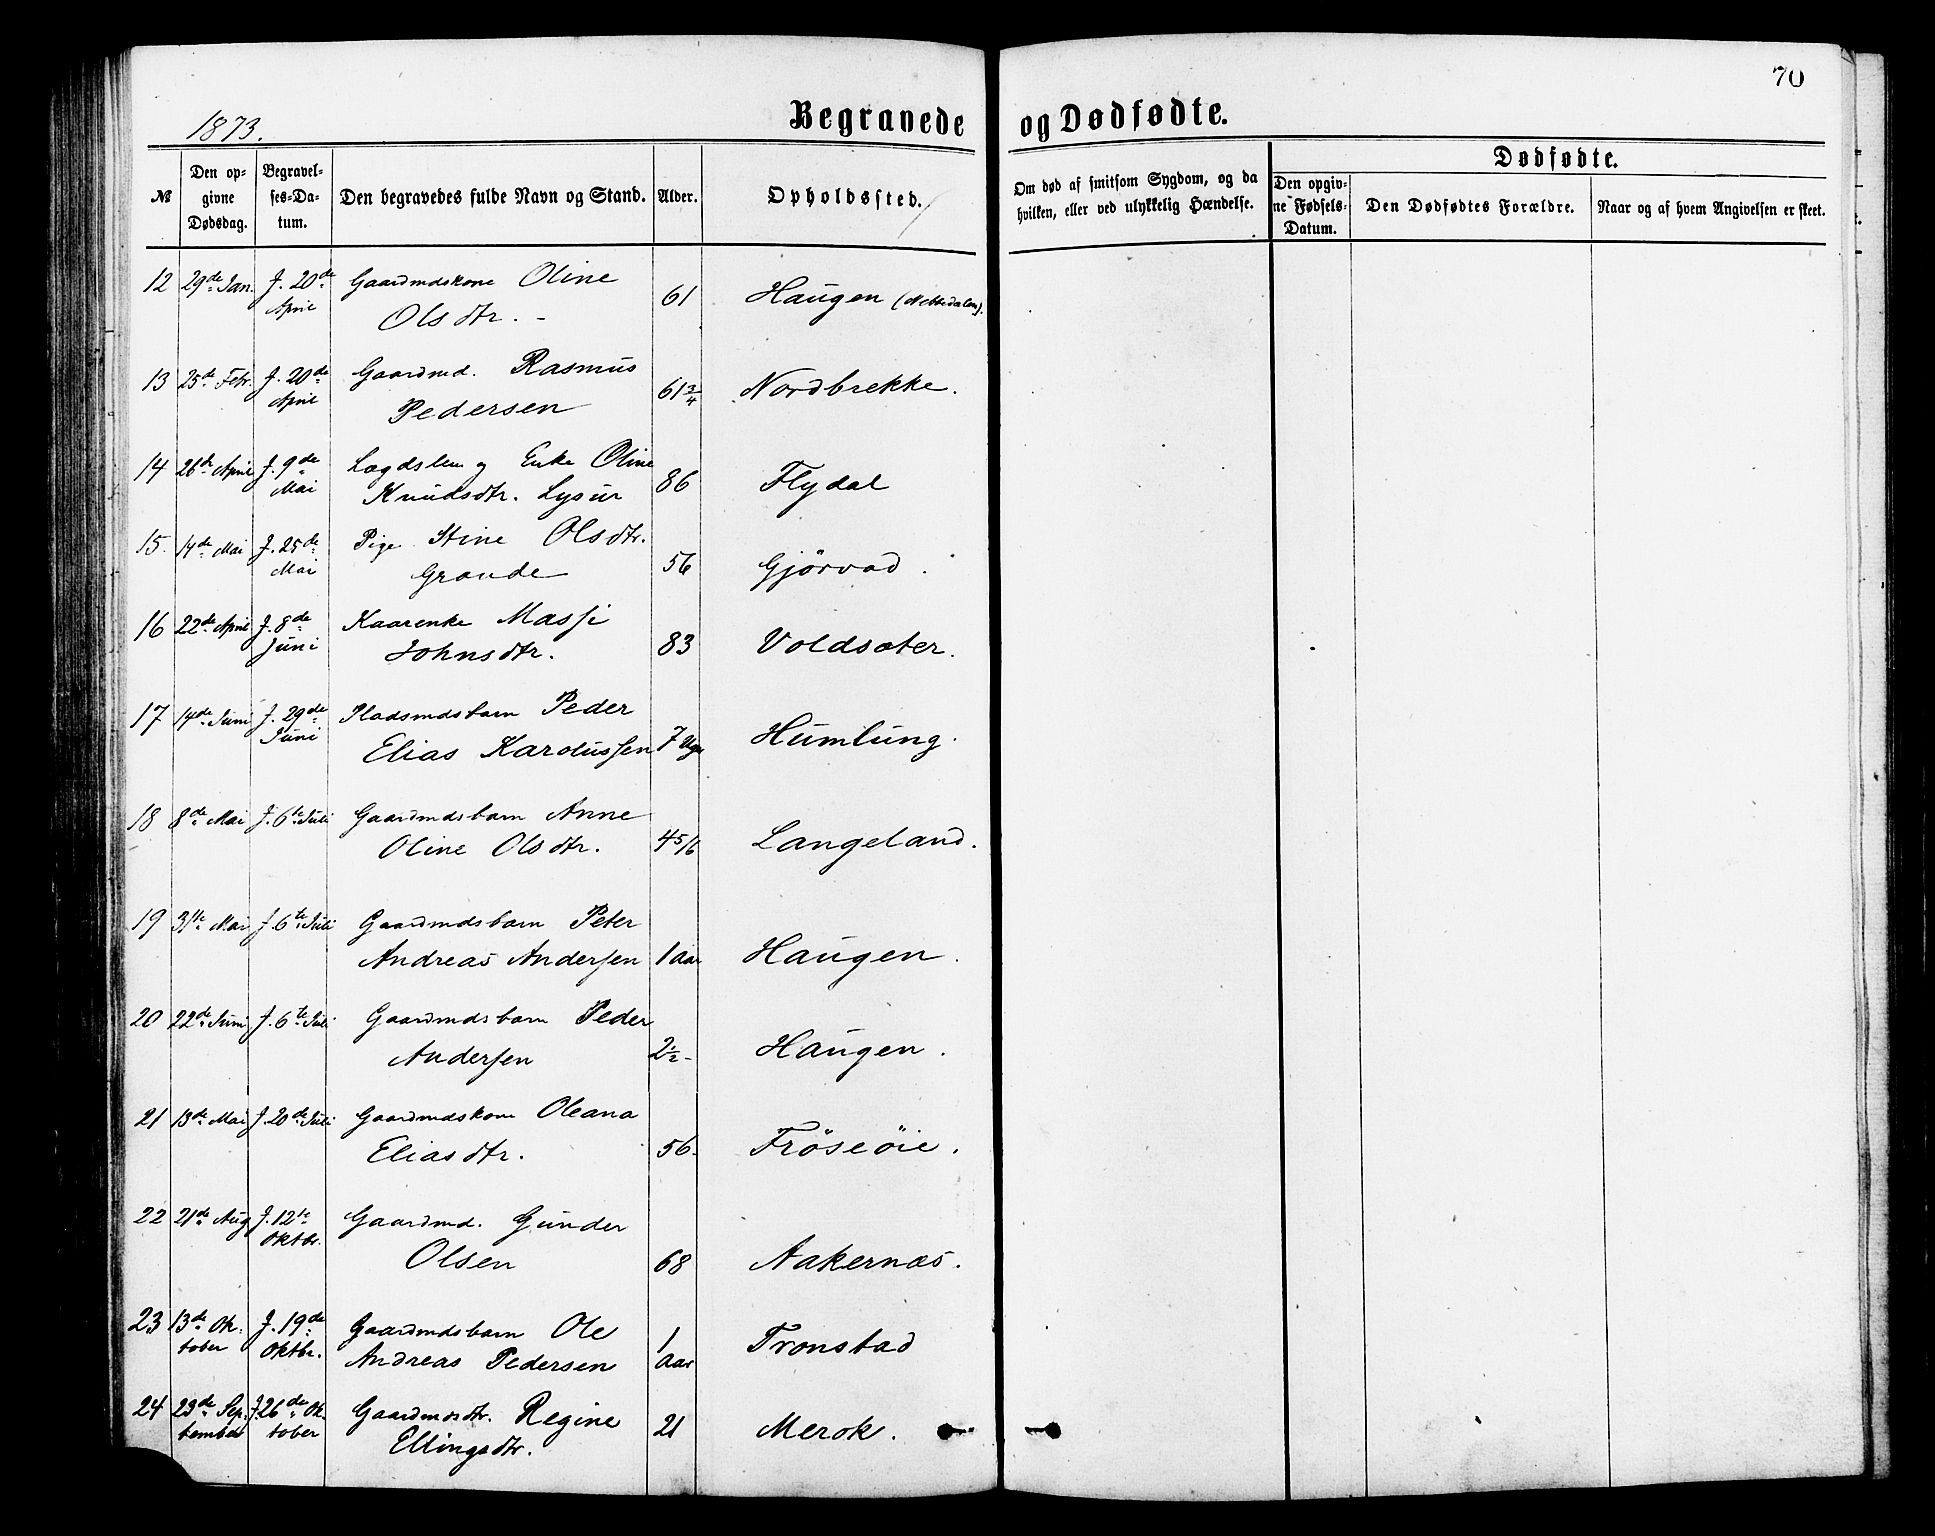 70
1873.
Begravede og Dødfødte.
№
Den op-
givne
Dødsdag.
Begravel-
ses-Da-
tum.
Den begravedes fulde Navn og Stand.
Alder.
Opholdssted.
Om død af smitsom Sygdom, og da
hvilken, eller ved ulykkelig Hændelse.
Dødfødte.
Den opgiv-
ne Fødsels-
Datum.
Den Dødfødtes Forældre.
Naar og af hvem Angivelsen er skeet.
12 29de Jan. J. 20de Gaardmdskone Oline
April Olsdtr. - 61 Haugen (Nebbedalen).
13 25de Febr. J. 20de Gaardmd. Rasmus
April Pedersen 61 3/4 Nordbrekke.
14 26de April J. 9de Lægdslem og Enke Oline
Mai Knudsdtr. Lysur 86 Flydal
15. 14de Mai J. 25de Pige Stine Olsdtr.
Mai Grande 56 Gjörvad.
16 22de April J. 8de Kaarenke Massi
Juni Johnsdtr. 83 Voldsæter.
17 14de Juni J. 29de Pladsmdsbarn Peder
Juni Elias Karolussen 7 Uger Humlung.
18 8de Mai J. 6te Juli Gaardmdsbarn Anne
Oline Olsdtr. 4 5/6 Langeland.
19 31te Mai J. 6te Juli Gaardmdsbarn Peter
Andreas Andersen 1 Aar Haugen.
20 22de Juni J. 6te Juli Gaardmdsbarn Peder
Andersen 2 1/2 - Haugen.
21 13de Mai J. 20de Juli Gaardmdskone Oleana
Eliasdtr. 56. Fröseöie.
22 21de Aug J. 12te Gaardmd. Gunder
Oktbr. Olsen 68 Aakernæs.
23 13de Ok- J. 19de Gaardmdsbarn Ole 1
tober Oktbr. Andreas Pedersen Aar Tronstad
24 23de Sep- J. 26de Ok- Gaardmdsdtr. Regine
tember tober Ellingsdtr. 21 Merok.